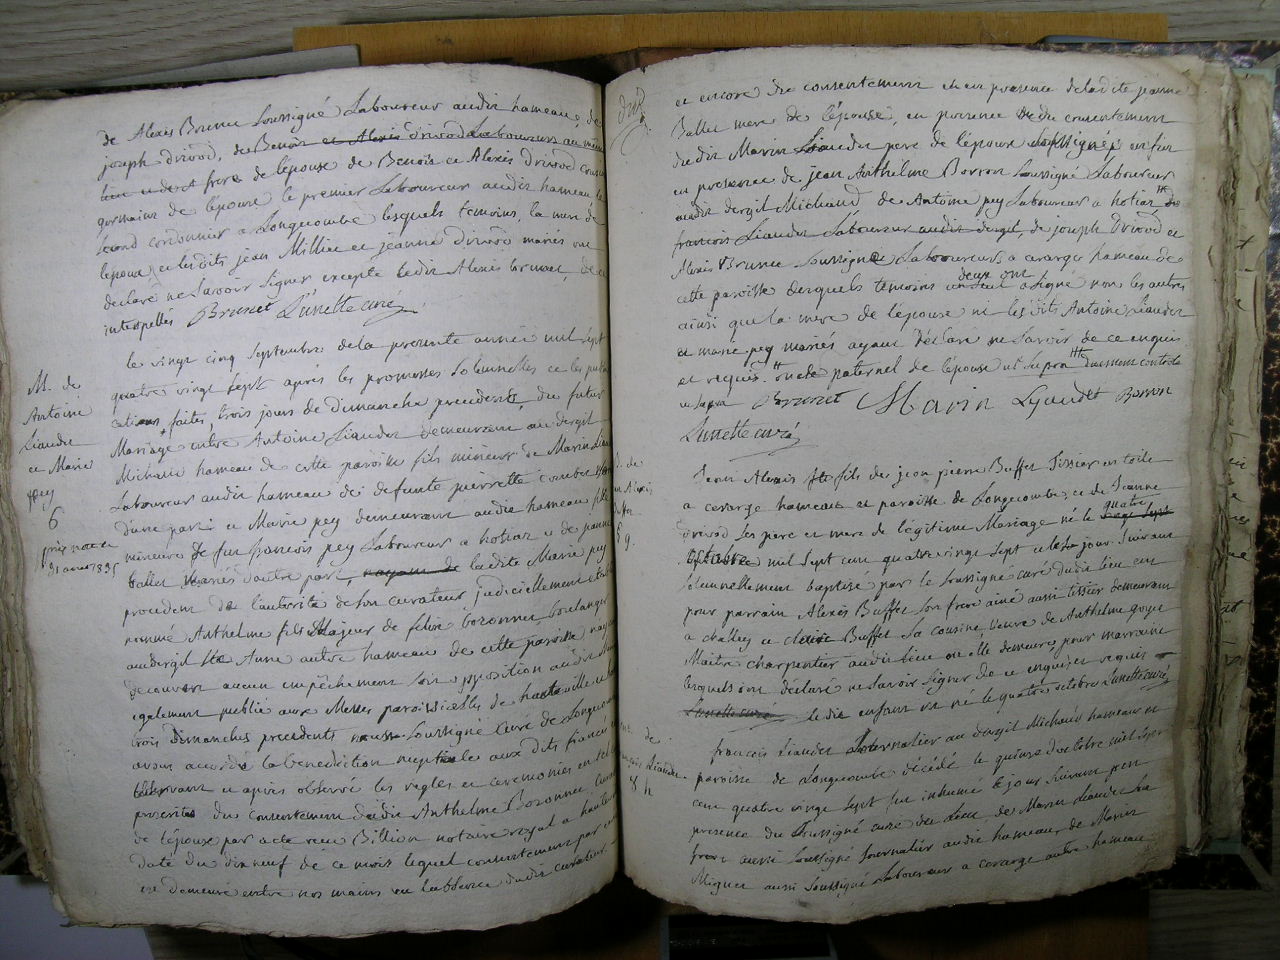 de Alexis Brunet soussigné Laboureur audit hameau, de
joseph drivod, de Benoit et Alexis drivod Laboureurs au meme
lieu frere de lépouse de Benoit et Alexis drivod cousins
germains de lépouse le premier Laboureur audit hameau le
second cordonnier a Longecombe lesquels temoins, la mere de
lepoux, et lesdits jean Millies et jeanne drivod mariés ont
declaré ne savoir signer excepté ledit Alexis brunet, de ce
interpellés Brunet Lunette curé
le vingt cinq septembre de la presente année mil sept
quatre vingt sept après les promesses solennelles et les publi
cations faites, trois jours de dimanche precedents, du futur
Mariage entre Antoine Liaudet demeurant au dergit
Michaud hameau de cette paroisse fils mineur de Marin Liaudet
Laboureur audit hameau et de defunte pierrette
d'une part et Marie pey demeurant audit hameau fille
mineure de feu françois pey Laboureur a hotiaz et de jeanne
ballet mariés d'autre part, la dite Marie pey
procedant de l'autorité de son curateur judiciellement etabli
nommé Anthelme fils Majeur de felix boronnet boulanger
audergit Ste Anne autre hameau de cette paroisse
decouvert aucun empêchement soit opposition audit
egalement publié aux Messes paroissialles de hauteville
trois dimanches precedents soussigné curé de Longecombe
avons accordé la benediction nuptiale aux dits fiancés
et après observé les regles et ceremonies en tel
prescrites du consentement dudit Anthelme
de lépoux par acte reçu Billion notaire royal a hauteville
daté du dixneuf de ce mois lequel consentement par
est demeuré entre nos mains en l'absence dudit curateur
M. de
Antoine
Liaudet
et Marie
pey
6
et encore du consentement et en presence de ladite jeanne
Ballet mere de lépouse, en presence et du consentement
dudit Marin Liaudet pere de lépoux soussigné, enfin
en presence de jean Anthelme Borron soussigné Laboureur
audit dergit Michaud de Antoine pey Laboureur a hotiaz de
françois Liaudet Laboureur audit dergit, de joseph Drivod et
Alexis Brunet soussigné Laboureurs a cerarge hameau de
cette paroisse desquels temoins deux ont signé non les autres
ainsi que la mere de lépouse ni les dits Antoine Liaudet
et marie pey mariés ayant déclaré ne savoir de ce enquis
et requis. oncle paternel de lépouse ut supra
ut supra Brunet Marin Lyaudet Borron
Lunette curé
Jean Alexis fils de jean pierre Buffet Tissier en toile
a cerarge hameau et paroisse de Longecombe et de Jeanne
drivod ses pere et mere de légitime Mariage né le quatre
octobre mil sept cent quatre vingt sept et le jour suivant
solennellement baptisé par le soussigné curé dudit lieu eut
pour parrain Alexis Buffet son frere ainé aussi tissier demeurant
a challey et Buffet sa cousine veuve de Anthelme goyet
Maitre charpentier audit lieu ou elle demeure, pour marraine
lesquels ont déclaré ne savoir signer de ce enquis et requis
Lunette curé le dit enfant est né le quatre octobre Lunette curé
françois Liaudet Journalier au dergit Michaud hameau et
paroisse de Longecombe décédé le quinze d'octobre mil sept
cent quatre vingt sept fut inhumé le jour suivant en
presence du soussigné curé du lieu, de Marin Liaudet son
frere aussi soussigné Journalier audit hameau, de Marin
Miguet aussi soussigné Laboureur a cerarge autre hameau